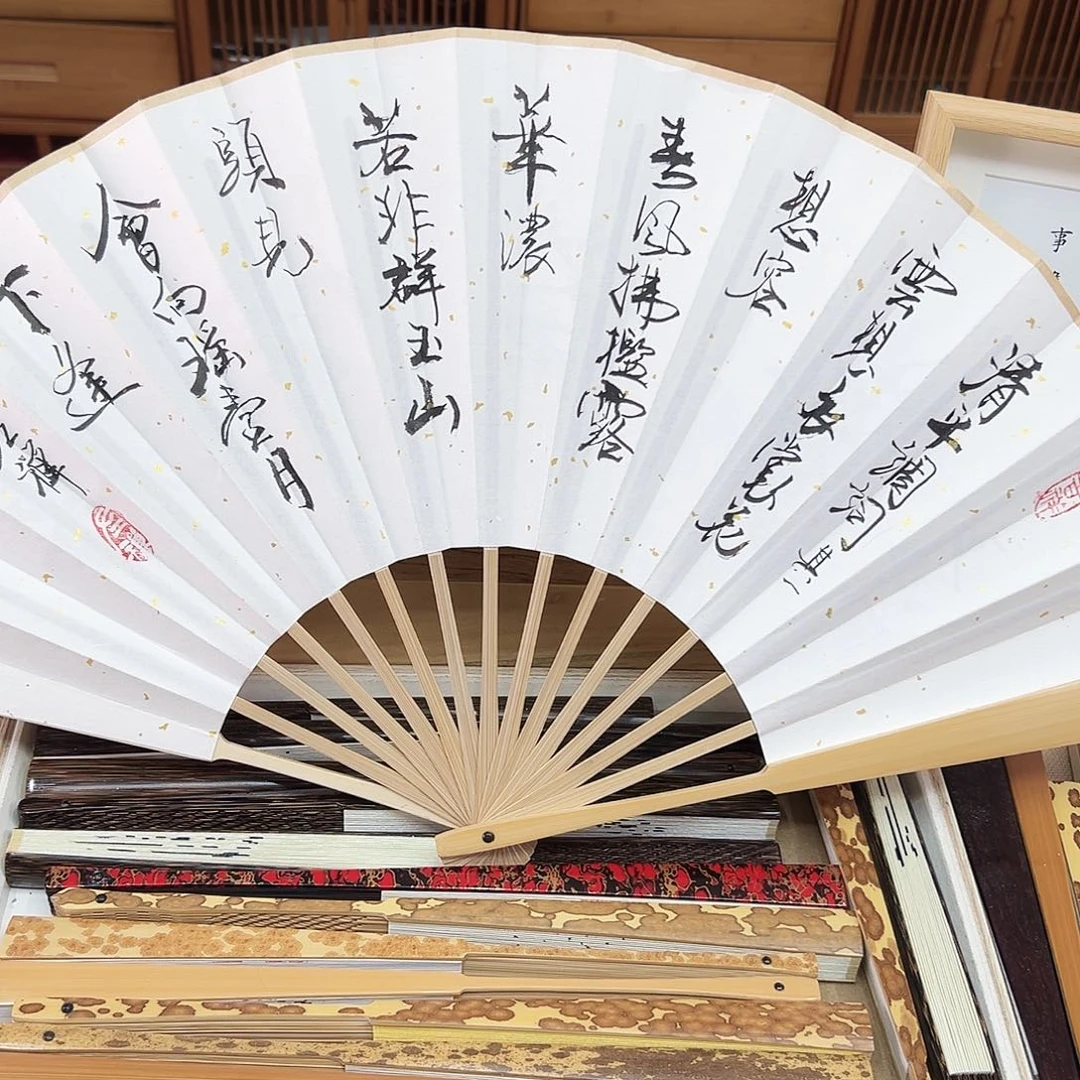 清平調詞其一
雲想衣裳花
想容
春風拂檻露
華濃
若非群玉山
頭見
會向瑶臺月
下逢
事